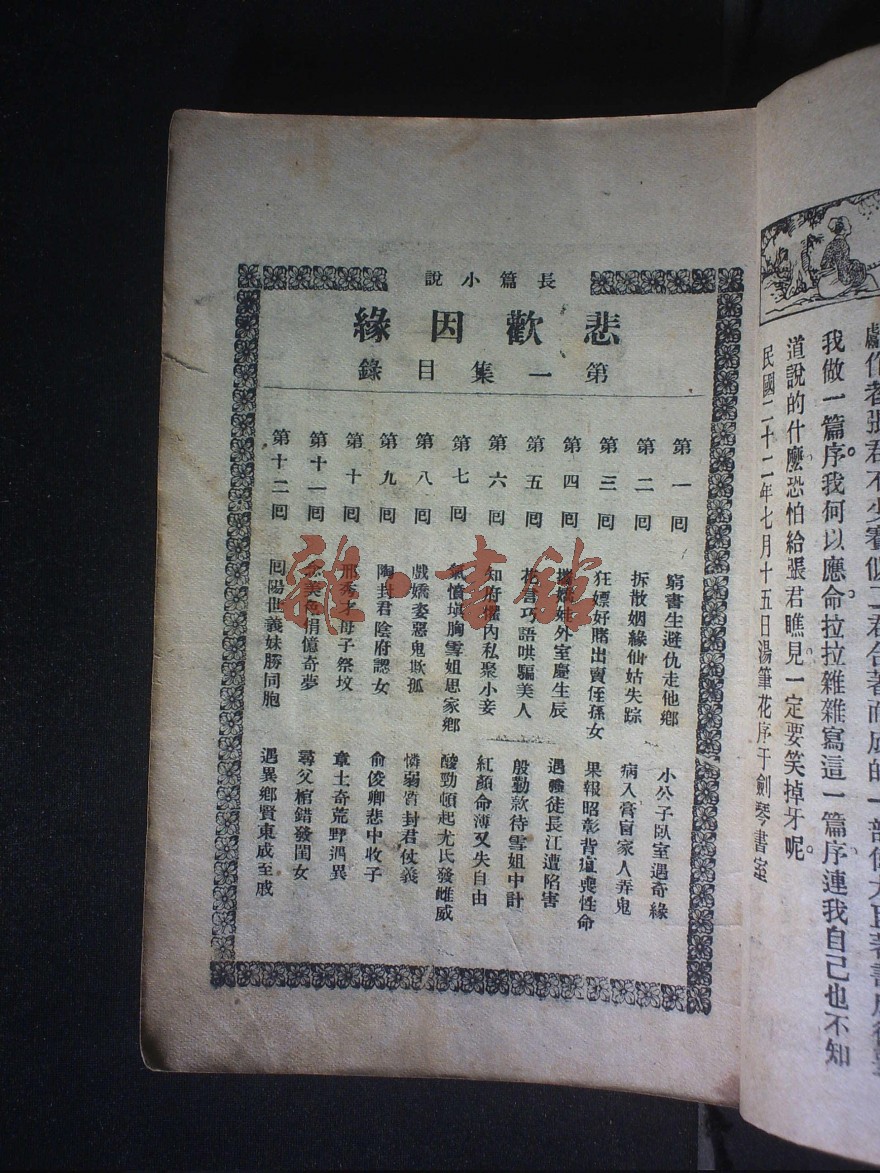 戲作者張君不少賽似二君合著而成的一部偉大
我做一篇序我何以應命拉拉雜雜寫這一篇序連我自己也不知
道說的什麼恐怕給張君瞧見一定要笑掉牙呢。
民國二十二年七月十五日湯筆花序于劍琴書室
長篇小說
悲歡因緣
第一集目錄
第一囘 窮書生避仇走他鄉 小公子臥室遇奇緣
第二囘 拆散姻緣仙姑失踪 病入膏盲家人弄鬼
第三囘 狂嫖好賭出賣侄孫女 果報昭彰背疽喪性命
第四囘 嬌娃外室慶生辰 遇徒長江遭陷害
第五囘 花言巧語哄騙美人 殷勤款待雪姐中計
第六囘 知府衙內私聚小妾 紅顏命薄又失自由
第七囘 氣憤塡胸雪姐思家鄉 酸勁頓起尤氏發雌威
第八囘 戲嬌姿惡鬼欺孤 憐弱質封君仗義
第九囘 陶封君陰府認女 俞俊卿悲中收子
第十囘 邢秀才母子祭坟 章士奇荒野遇異
第十一囘 念美色捐憶奇夢 尋父棺錯發閨女
第十二囘 囘陽世義妹勝同胞 遇異鄉賢東成至戚
雜·書館